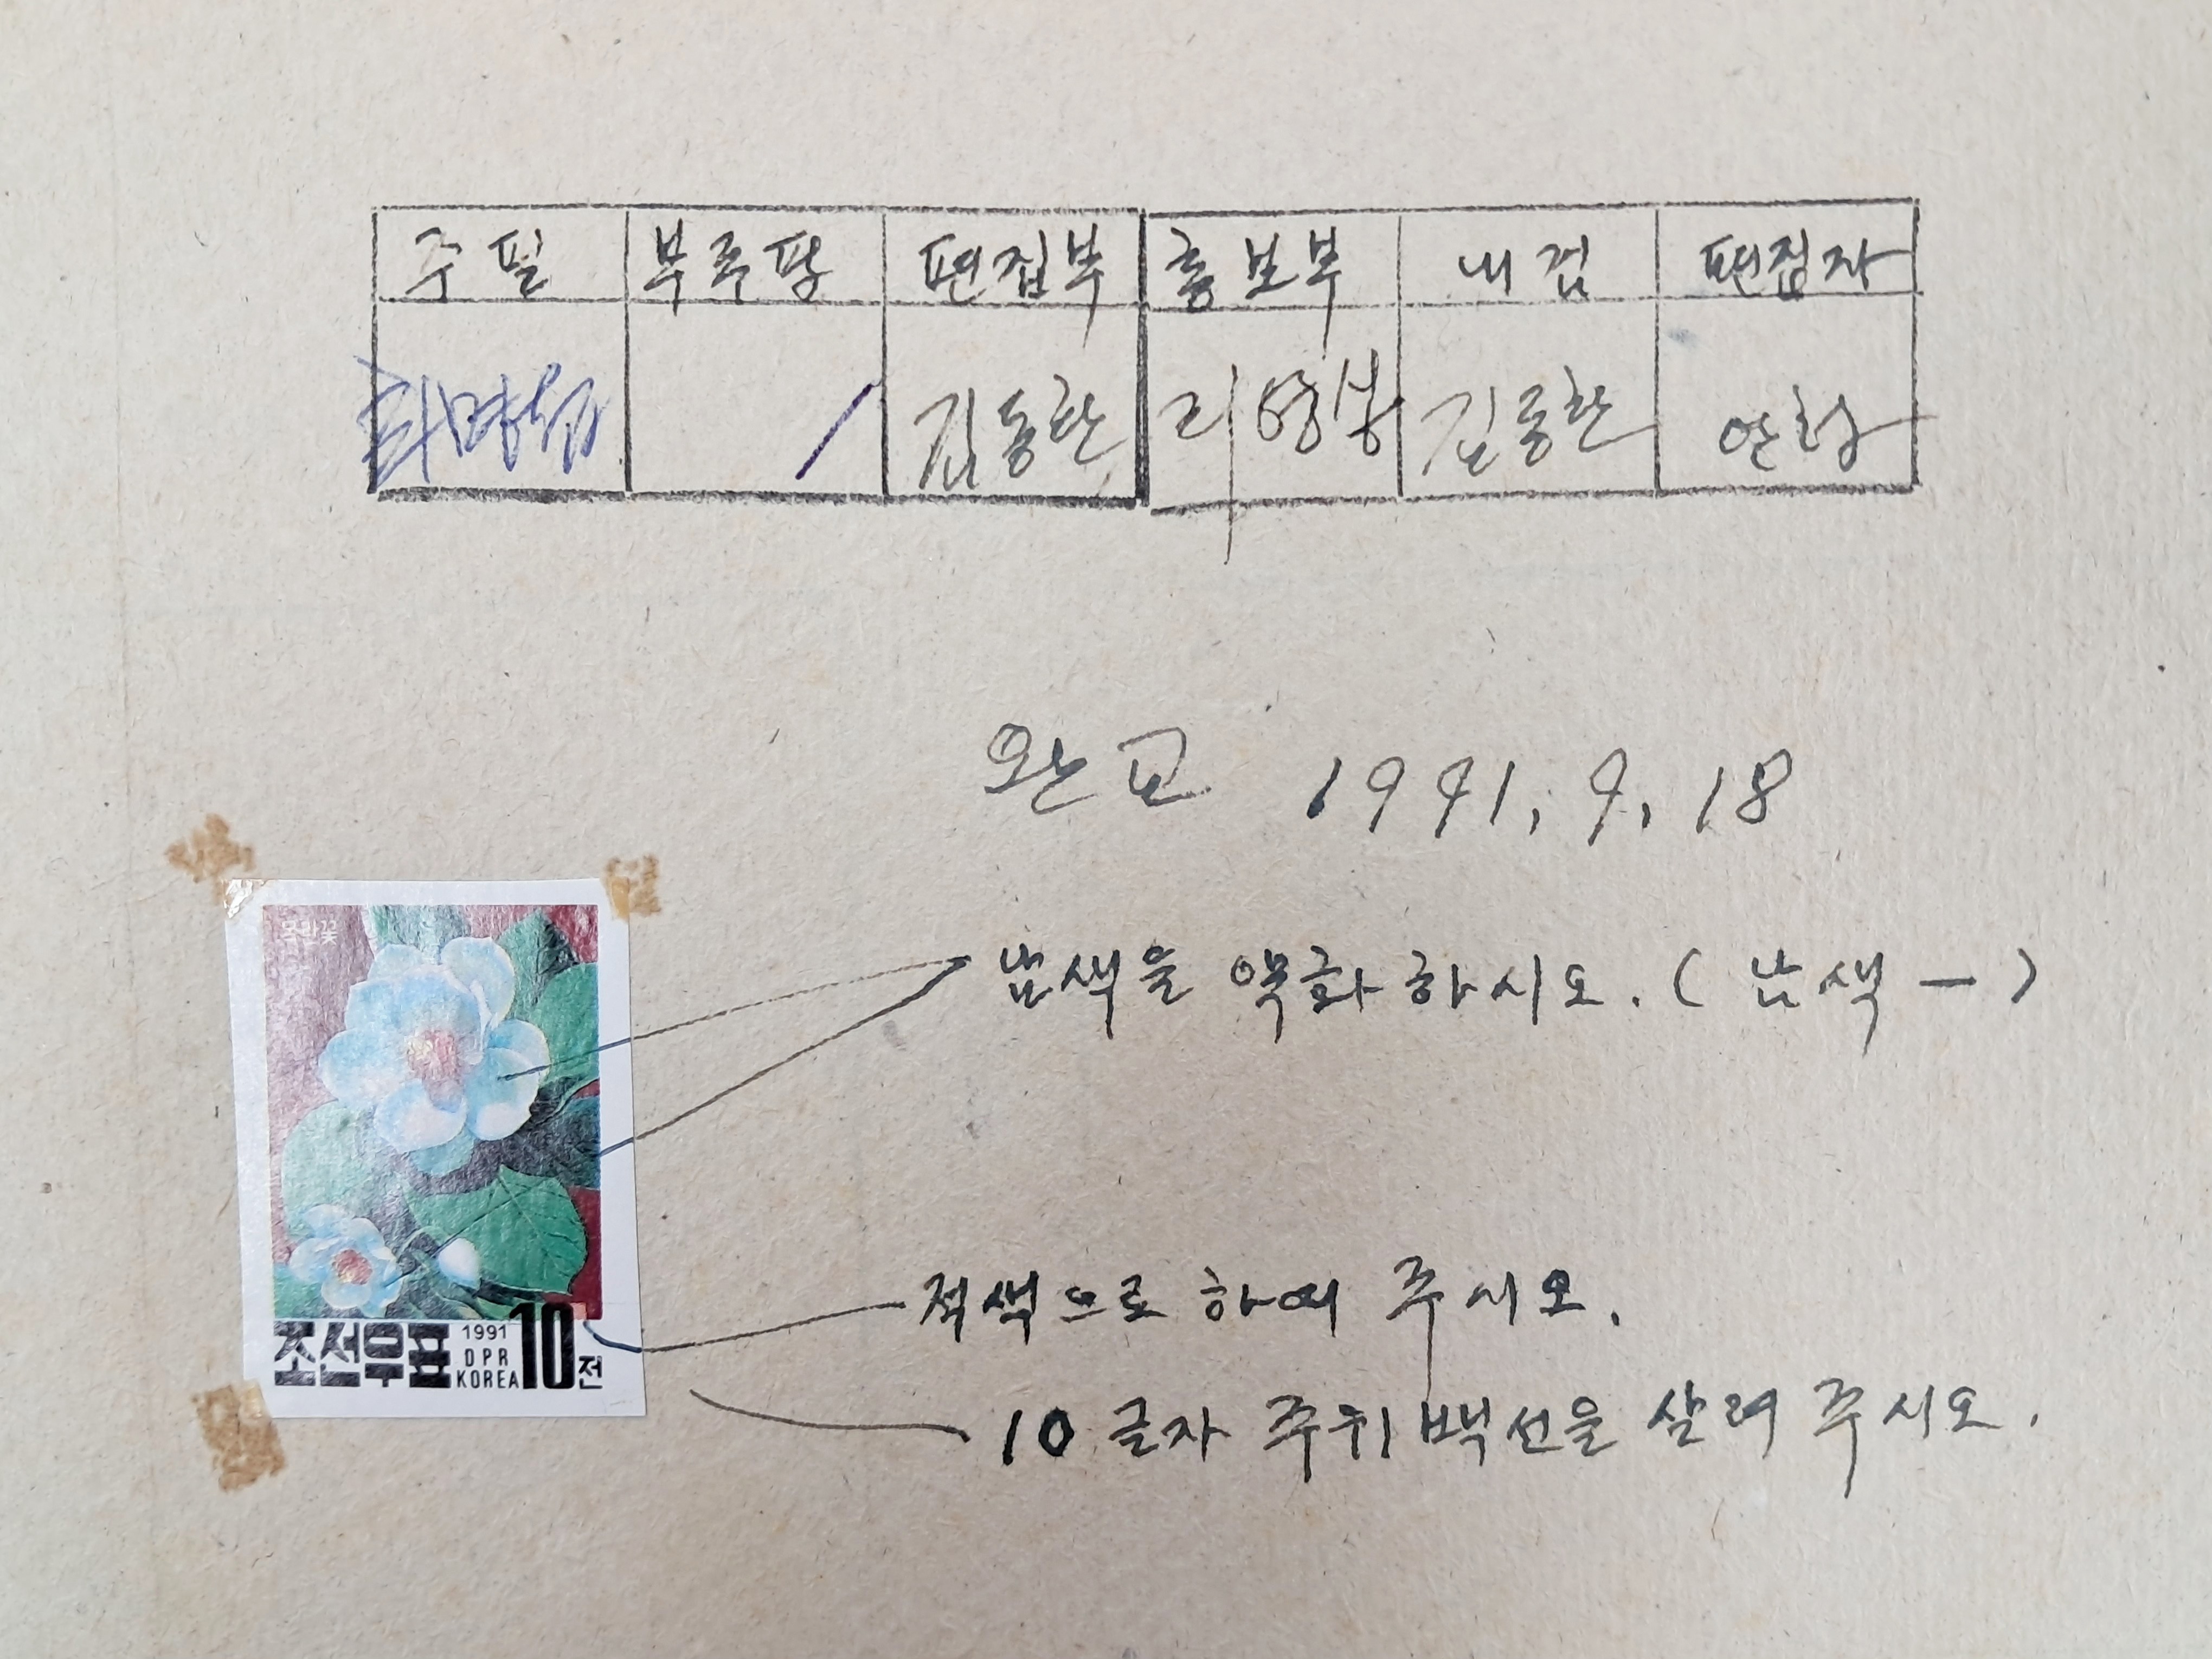 주필 부주필 편집부 홍보부 내검 편집자
김동찬 리영봉 김동찬
완교 1991. 9. 18
목란꽃
남색을 약화하시오. (남색 —)
적색으로 하여 주시오.
조선우표 1991 DPR KOREA 10전
10 글자 주위 백선을 살려 주시오.